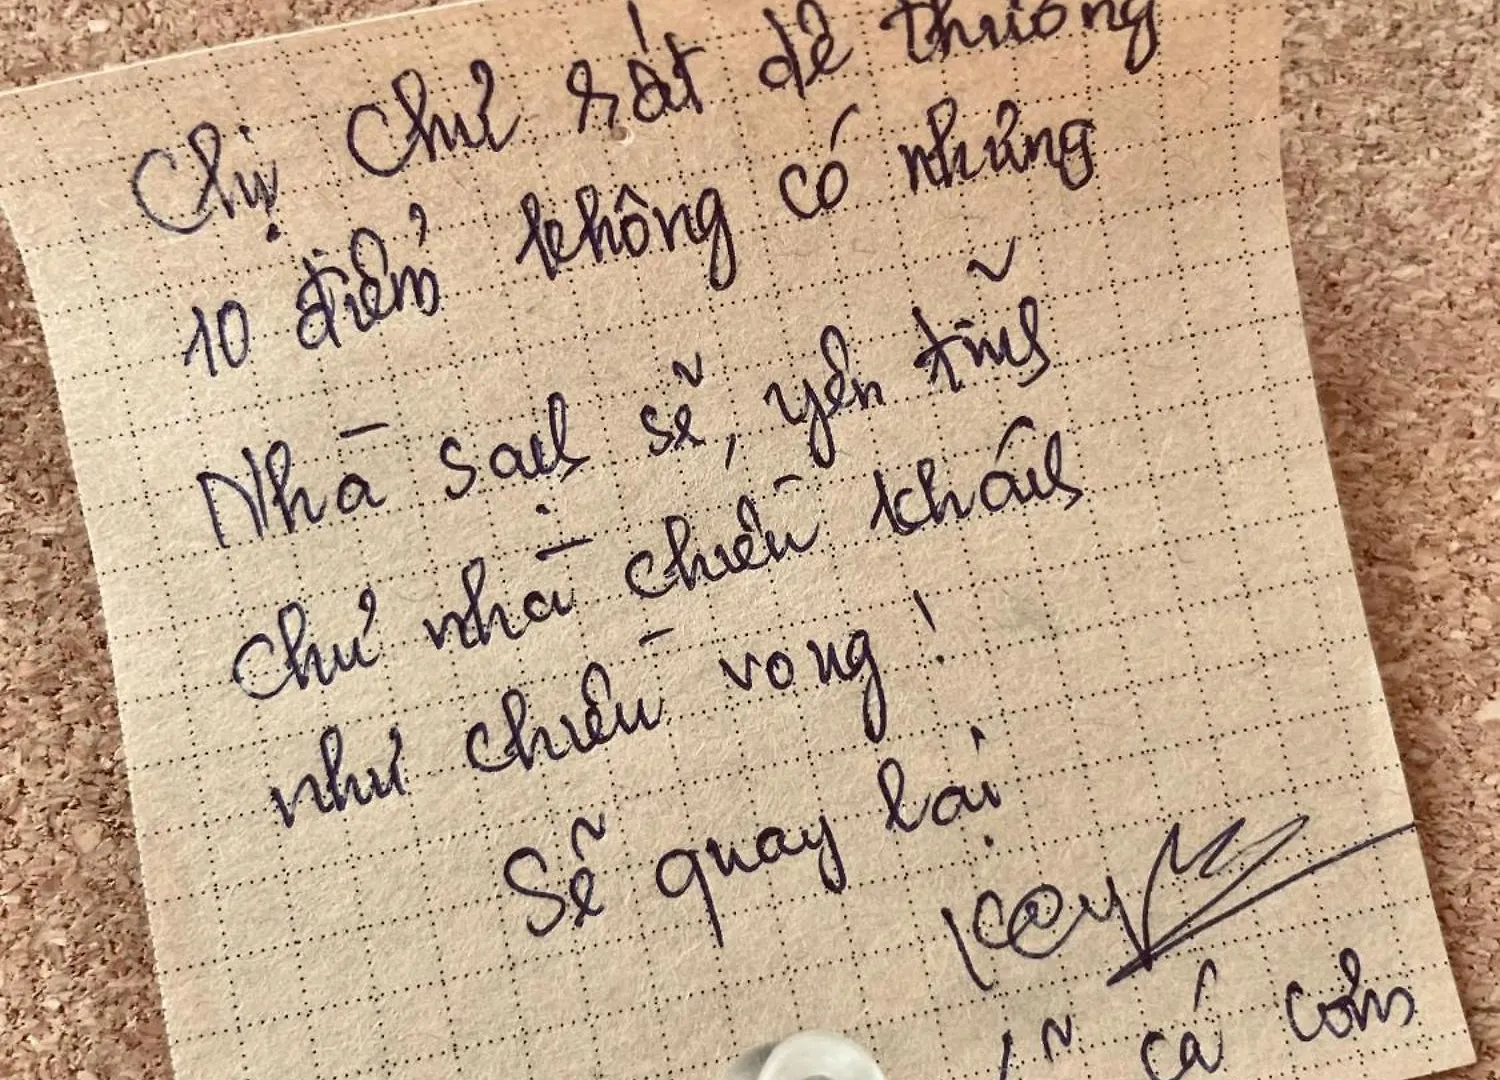 Chị Chủ rất dễ thương
10 điểm không có nhưng
Nhà sạch sẽ, yên tĩnh
chủ nhà chiều khách
như chiều vong!
Sẽ quay lại
Key
cá cơm